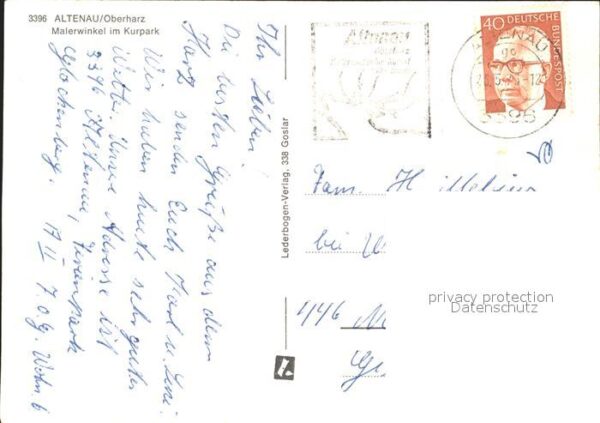 3396 ALTENAU/Oberharz
Malerwinkel im Kurpark
Ihr Lieben!
Die besten Grüße aus dem
Harz senden Euch Karl u. Leni.
Wir haben heute sehr gutes
Wetter. Unsere Adresse ist
3396 Altenau, Ferienpark
Glockenberg. 17 II 7. O.G. Wohn. 6
Lederbogen-Verlag, 338 Goslar
Altenau
40 DEUTSCHE BUNDESPOST
ALTENAU
3396
Fam. H
bei
446
privacy protection
Datenschutz